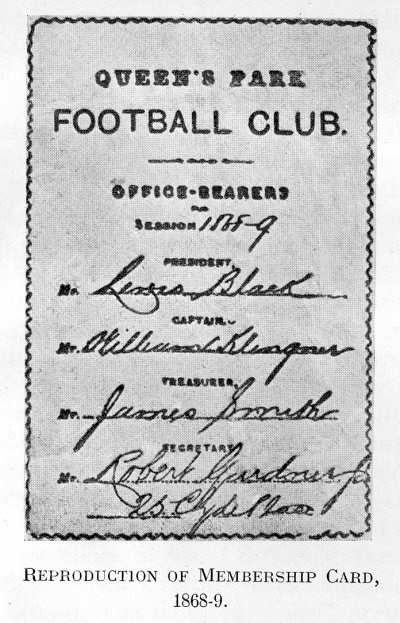 QUEEN'S PARK
FOOTBALL CLUB.
OFFICE-BEARERS
SESSION 1868-9
PRESIDENT,
Mr. Lewis Black
CAPTAIN.
Mr. William Klingner
TREASURER,
Mr. James Smith
SECRETARY
Mr. Robert Gardner Jr
25 Clyde Place
REPRODUCTION OF MEMBERSHIP CARD,
1868-9.